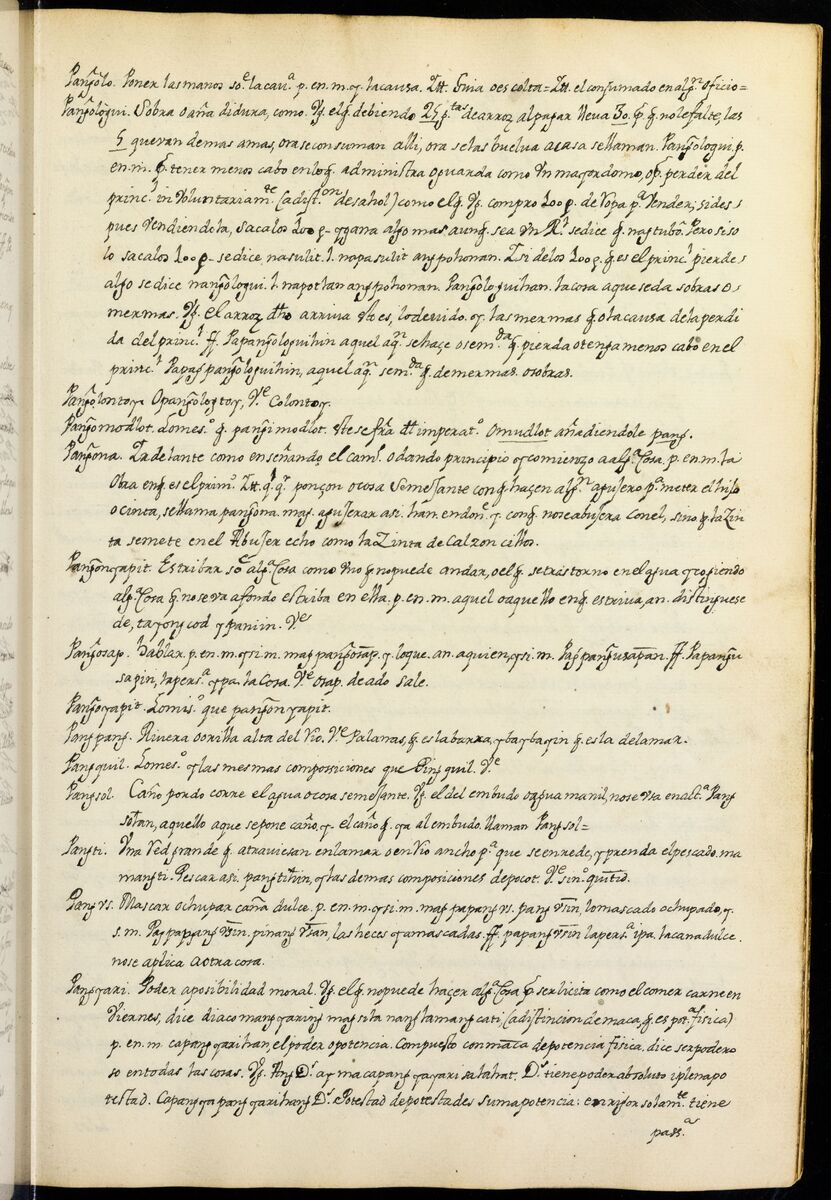 Pang̃olo. Poner las manos so.e la cau.a p. en. m. y la causa. Itt. Guia o escolta = Itt. el consumado en alg.n oficio =
Pang̃ologui. Sobra o aña didura, como. Vg. el q̃. debiendo 25 p.tas de arroz al pagar lleva 30. p. q̃ no le falte, las
5 quevan demas amas, ora se consuman alli, ora selas buelva a casa se llaman. Pang̃ologui. p.
en. m. tener menos cabo en lo q̃. administra o guarda como Vn mayordomo, perder del
princ.l in Voluntariam.te (a dist.on de sahol) como el q̃. Vg. compro 100 p. de Ropa p.a Vender; si des
pues Vendiendola, saca los 100 p. y gana algo mas aunq̃. sea Vn R.l se dice q̃. nagtubò. Pero si so
lo saca los 100 p. se dice, nasulit. l. napasulit ang pohonan. I si de los 100 p. q̃ es el princ.l pierde
algo se dice nang̃ologui. l. napotlan ang pohonan. Pang̃ologuihan. la cosa a que se da sobras o
mermas. Vg. el arroz dho arriva sto es, lo devido. y las mermas q̃ o la causa de la perdi
da del princ.l ff. Papang̃ologuihin aquel a q.n se haçe o sem.da q̃ pierda o tenga menos cabo en el
princ.l Papagpang̃ologuihin, aquel a q.n sem.da q̃. de mermas. o sobras.
Pang̃olontoy. O pang̃ologtoy, V.e Colontoy.
Pang̃omodlot. Lo mes.o q̃. pang̃imodlot. ste se fr̃a dl imperat.o Omudlot añadiendole pang.
Pang̃ona. Ir delante como enseñando el cam.o o dando principio y comienzo a alg.a Cosa. p. en. m. la
Obra en q̃. es el prim.o Itt. q.l q.r ponçon o cosa Semejante con q̃. haçen alg.n agujero p.a meter el hilo
o cinta, se llama pang̃ona. mag. agujerar asi. han. en don.e y con q̃. no se abujera con el, sino q̃ la Zin
ta se mete en el Abujer echo como la Zinta de Calzon cillos.
Pang̃ongapit. Estribar so.e alg.a Cosa como Vno q̃ no puede andar, o el q̃. se trastorno en el agua y cogiendo
alg.a Cosa q̃. no se va a fondo estriba en ella. p. en. m. aquel o aquello en q̃. estriva, an. distinguese
de, tayongcod y paniin. V.e
Pang̃osap. Hablar. p. en. m. y si. m. mag pang̃osap. y lo que. an. a quien, y si. m. Pagpang̃usapan. ff. Papang̃u
sapin, la pers.a ypa. la Cosa. V.e osap. de ado sale.
Pang̃oyapit. Lo mis.o que pang̃ongapit.
Pangpang. Rivera o orilla alta del Rio. V.e Palanas, q̃. es la barra, y baybayin q̃. es la de la mar.
Pangquil. Lo mes.o y las mesmas composiciones que Pingquil. V.e
Pangsol. Caño por do corre el agua o cosa semejante. Vg. el del embudo o agua manil, no se Vsa en act.a Pang
solan, aquello a que se pone caño. y el caño q̃. ya al embudo. llaman Pangsol =
Pangti. Vna Red grande q̃. atraviesan en la mar o en Rio ancho p.a que se enrede, y prenda el pescado. ma
mangti. Pescar asi. pangtihin, y las demas composiciones de pocot. V.e sin.o quitid.
Pang us. Mascar o chupar caña dulce. p. en. m. y si. m. mag papang us. pang usin, lo mascado o chupado, y
s. m. Pagpapang usin, pinang usan, las heces ya mascadas. ff. papang usin la pers.a ipa. la cana dulce.
no se aplica a otra cosa.
Pangyari. Poder a posibilidad moral. Vg. el q̃ no puede haçer alg.a Cosa ser licita como el comer carne en
Viernes, dice di aco mangyaring magsila nang lamang cati. (a distincion de maca, q̃. es pot.a fisica)
p. en. m. capangyarihan, el poder o potencia. Compuesto con maca de potencia fisica, dice ser podero
so en todas las cosas. Vg. Ang D.s ay macapangyayari sa lahat. D.s tiene poder absoluto i plena po
testad. Capangyapangyarihang D.s Potestad de potestades suma potencia: en rigor solam.te tiene
pass.a